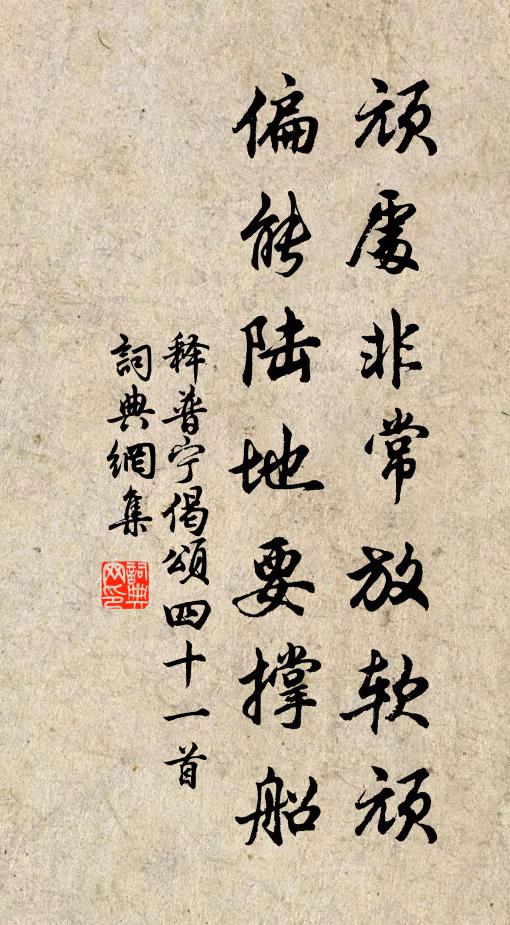 頑處非常放软頑
偏能陆地要撑船
释普宁偈頌四十一首
詞典網集
詞典网印